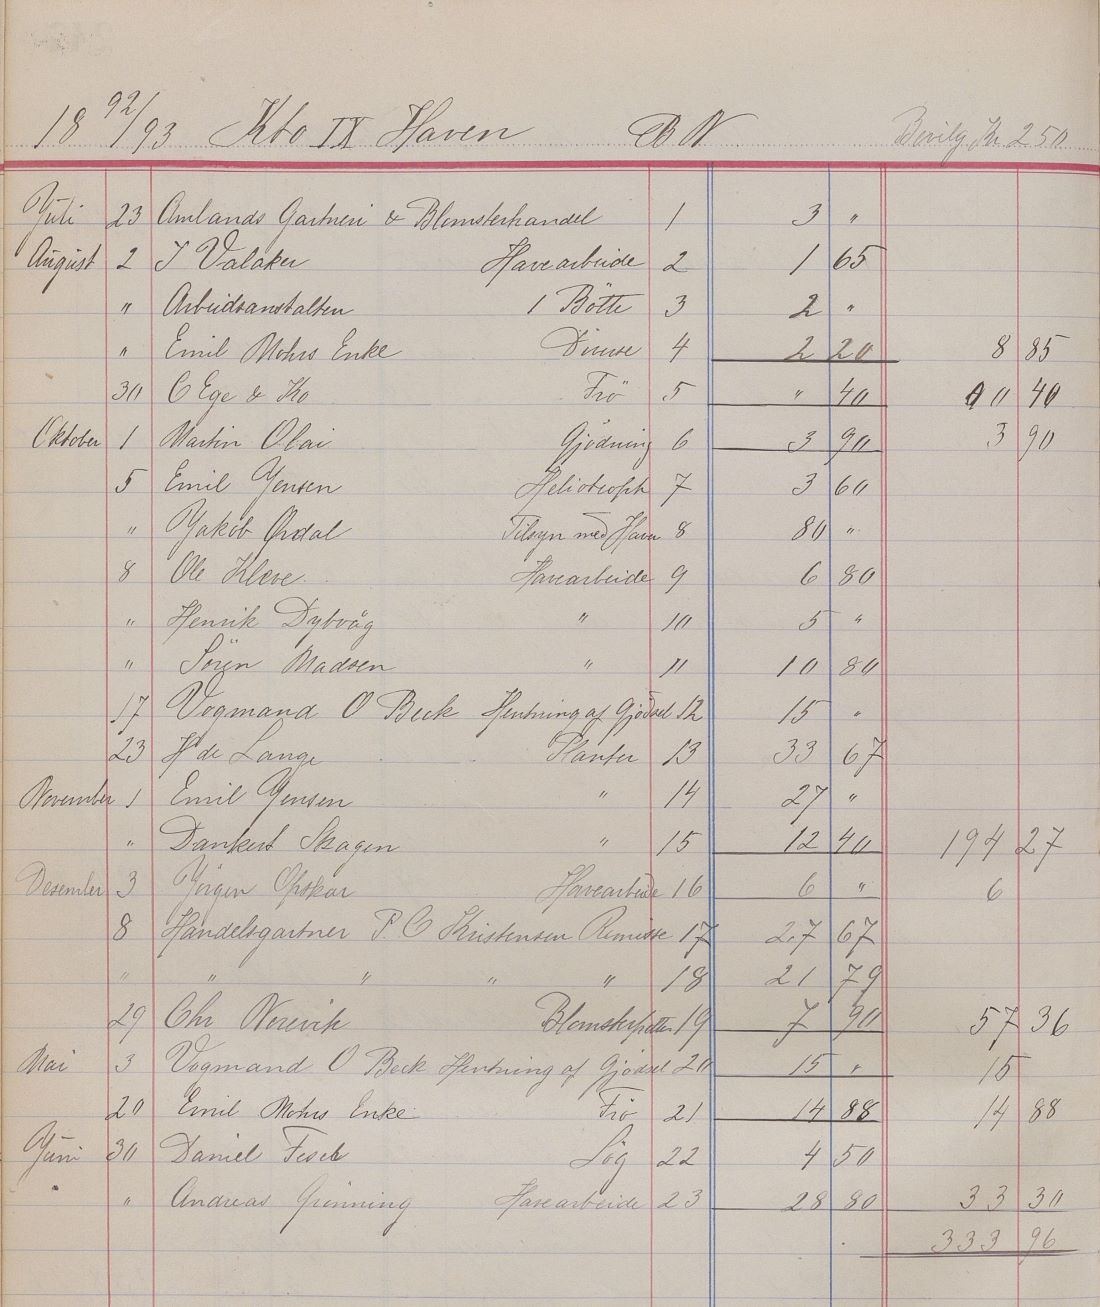 18 92/93 Kto IX Haven B N Bevilg. Kr. 250
Juli 23 Omlands Gartneri & Blomsterhandel 1 3 "
August 2 J Valaker Havearbeide 2 1 65
" Arbeidsanstalten 1 Bötte 3 2 "
" Emil Mohrs Enke Diverse 4 2 20 8 85
30 C Ege & Ko Frö 5 " 40 0 40
Oktober 1 Martin Olai Gjödning 6 3 90 3 90
5 Emil Jensen Heliotroph 7 3 60
" Jakob Ordal Tilsyn med Haven 8 80 "
8 Ole Kleve Havearbeide 9 6 80
" Henrik Dybvåg " 10 5 "
" Sören Madsen " 11 10 80
17 Vogmand O Beck Hentning af Gjödsel 12 15 "
23 H de Lange Planter 13 33 67
November 1 Emil Jensen " 14 27 "
" Dankert Skagen " 15 12 40 194 27
Desember 3 Jörgen Opskar Havearbeide 16 6 " 6
8 Handelsgartner P. C Kristensen Remisse 17 27 67
" " " " " 18 21 79
29 Chr Norevik Blomsterpotter 19 7 90 57 36
Mai 3 Vogmand O Beck Hentning af Gjödsel 20 15 " 15
20 Emil Mohrs Enke Frö 21 14 88 14 88
Juni 30 Daniel Lög 22 4 50
" Andreas Grönning Havearbeide 23 28 80 33 30
333 96